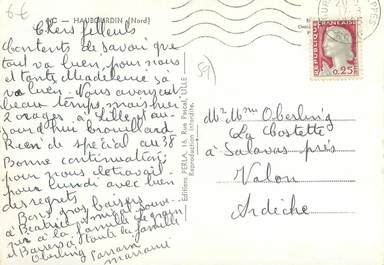 6 €
HAUBOURDIN (Nord)
Chers filleuls
Contents de savoir que
tout va bien, pour nous
et tante Madeleine ça
va bien. Nous avons eu
beau temps, mais hier
2 orages, à Lille et au
jourd'hui brouillard
Rien de spécial au 38
Bonne continuation,
pour nous le travail
pour lundi avec bien
des regrets
Bons gros baisers
à Béatrice
à la famille
et à toute la famille
Oberling Parrain
Marraine
Editions PERLA, 16, Rue Pascal, LILLE
Reproduction interdite.
59
REPUBLIQUE FRANÇAISE
0,25
Mr Mme Oberling
La Costette
à Salavas près
Valon
Ardèche